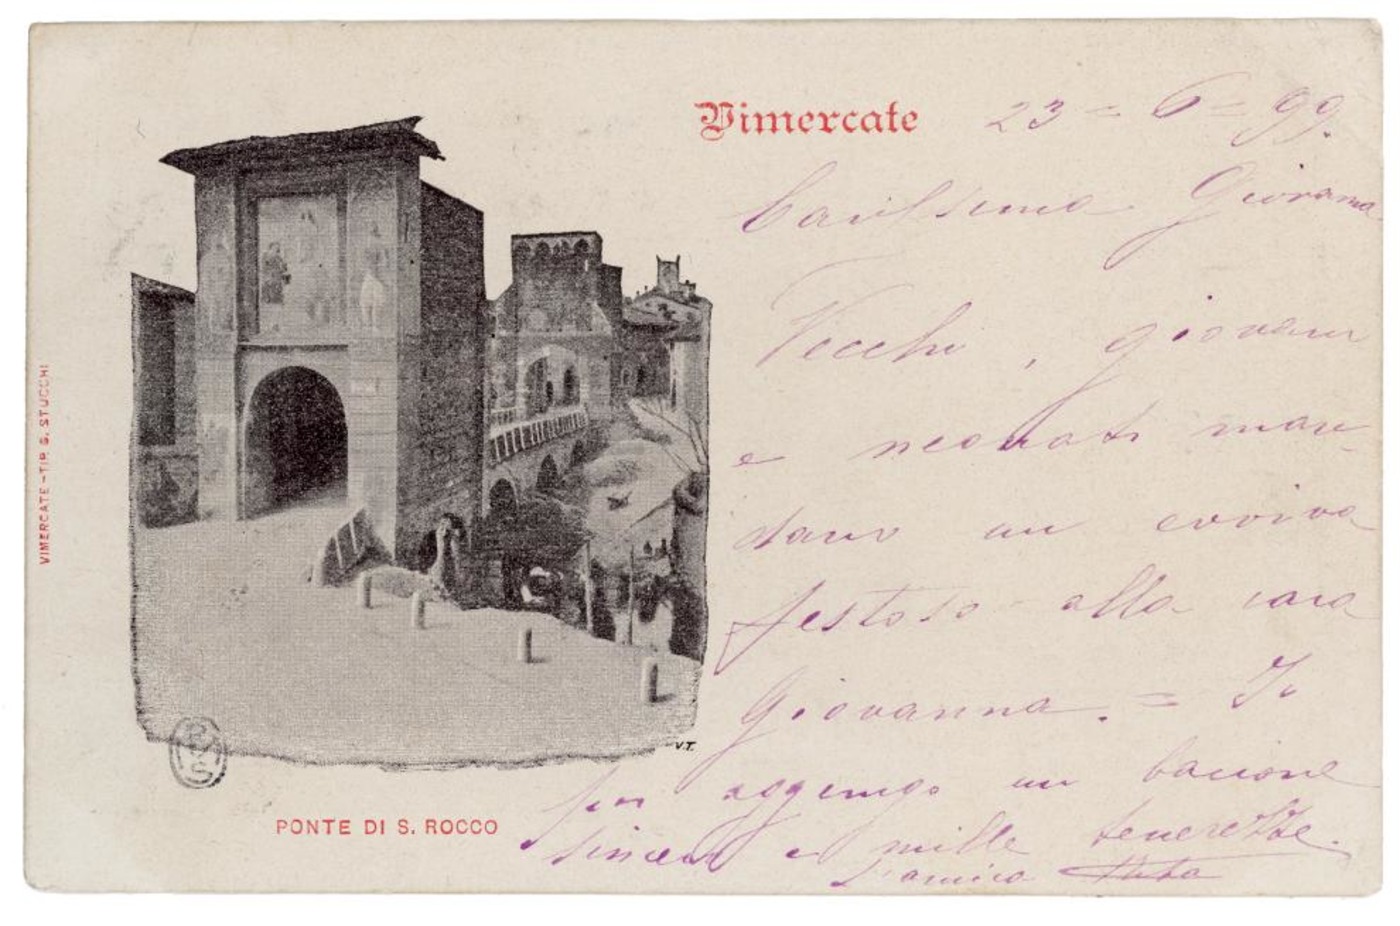 Vimercate 23 = 6 = 99.
Carissima Giovanna
Vecchi, giovani
e neonati man-
dano un evviva
festoso alla cara
Giovanna. = Io
poi aggiungo un bacione
sincero e mille tenerezze.
L'amica
V.T.
PONTE DI S. ROCCO
VIMERCATE - TIP. S. STUCCHI